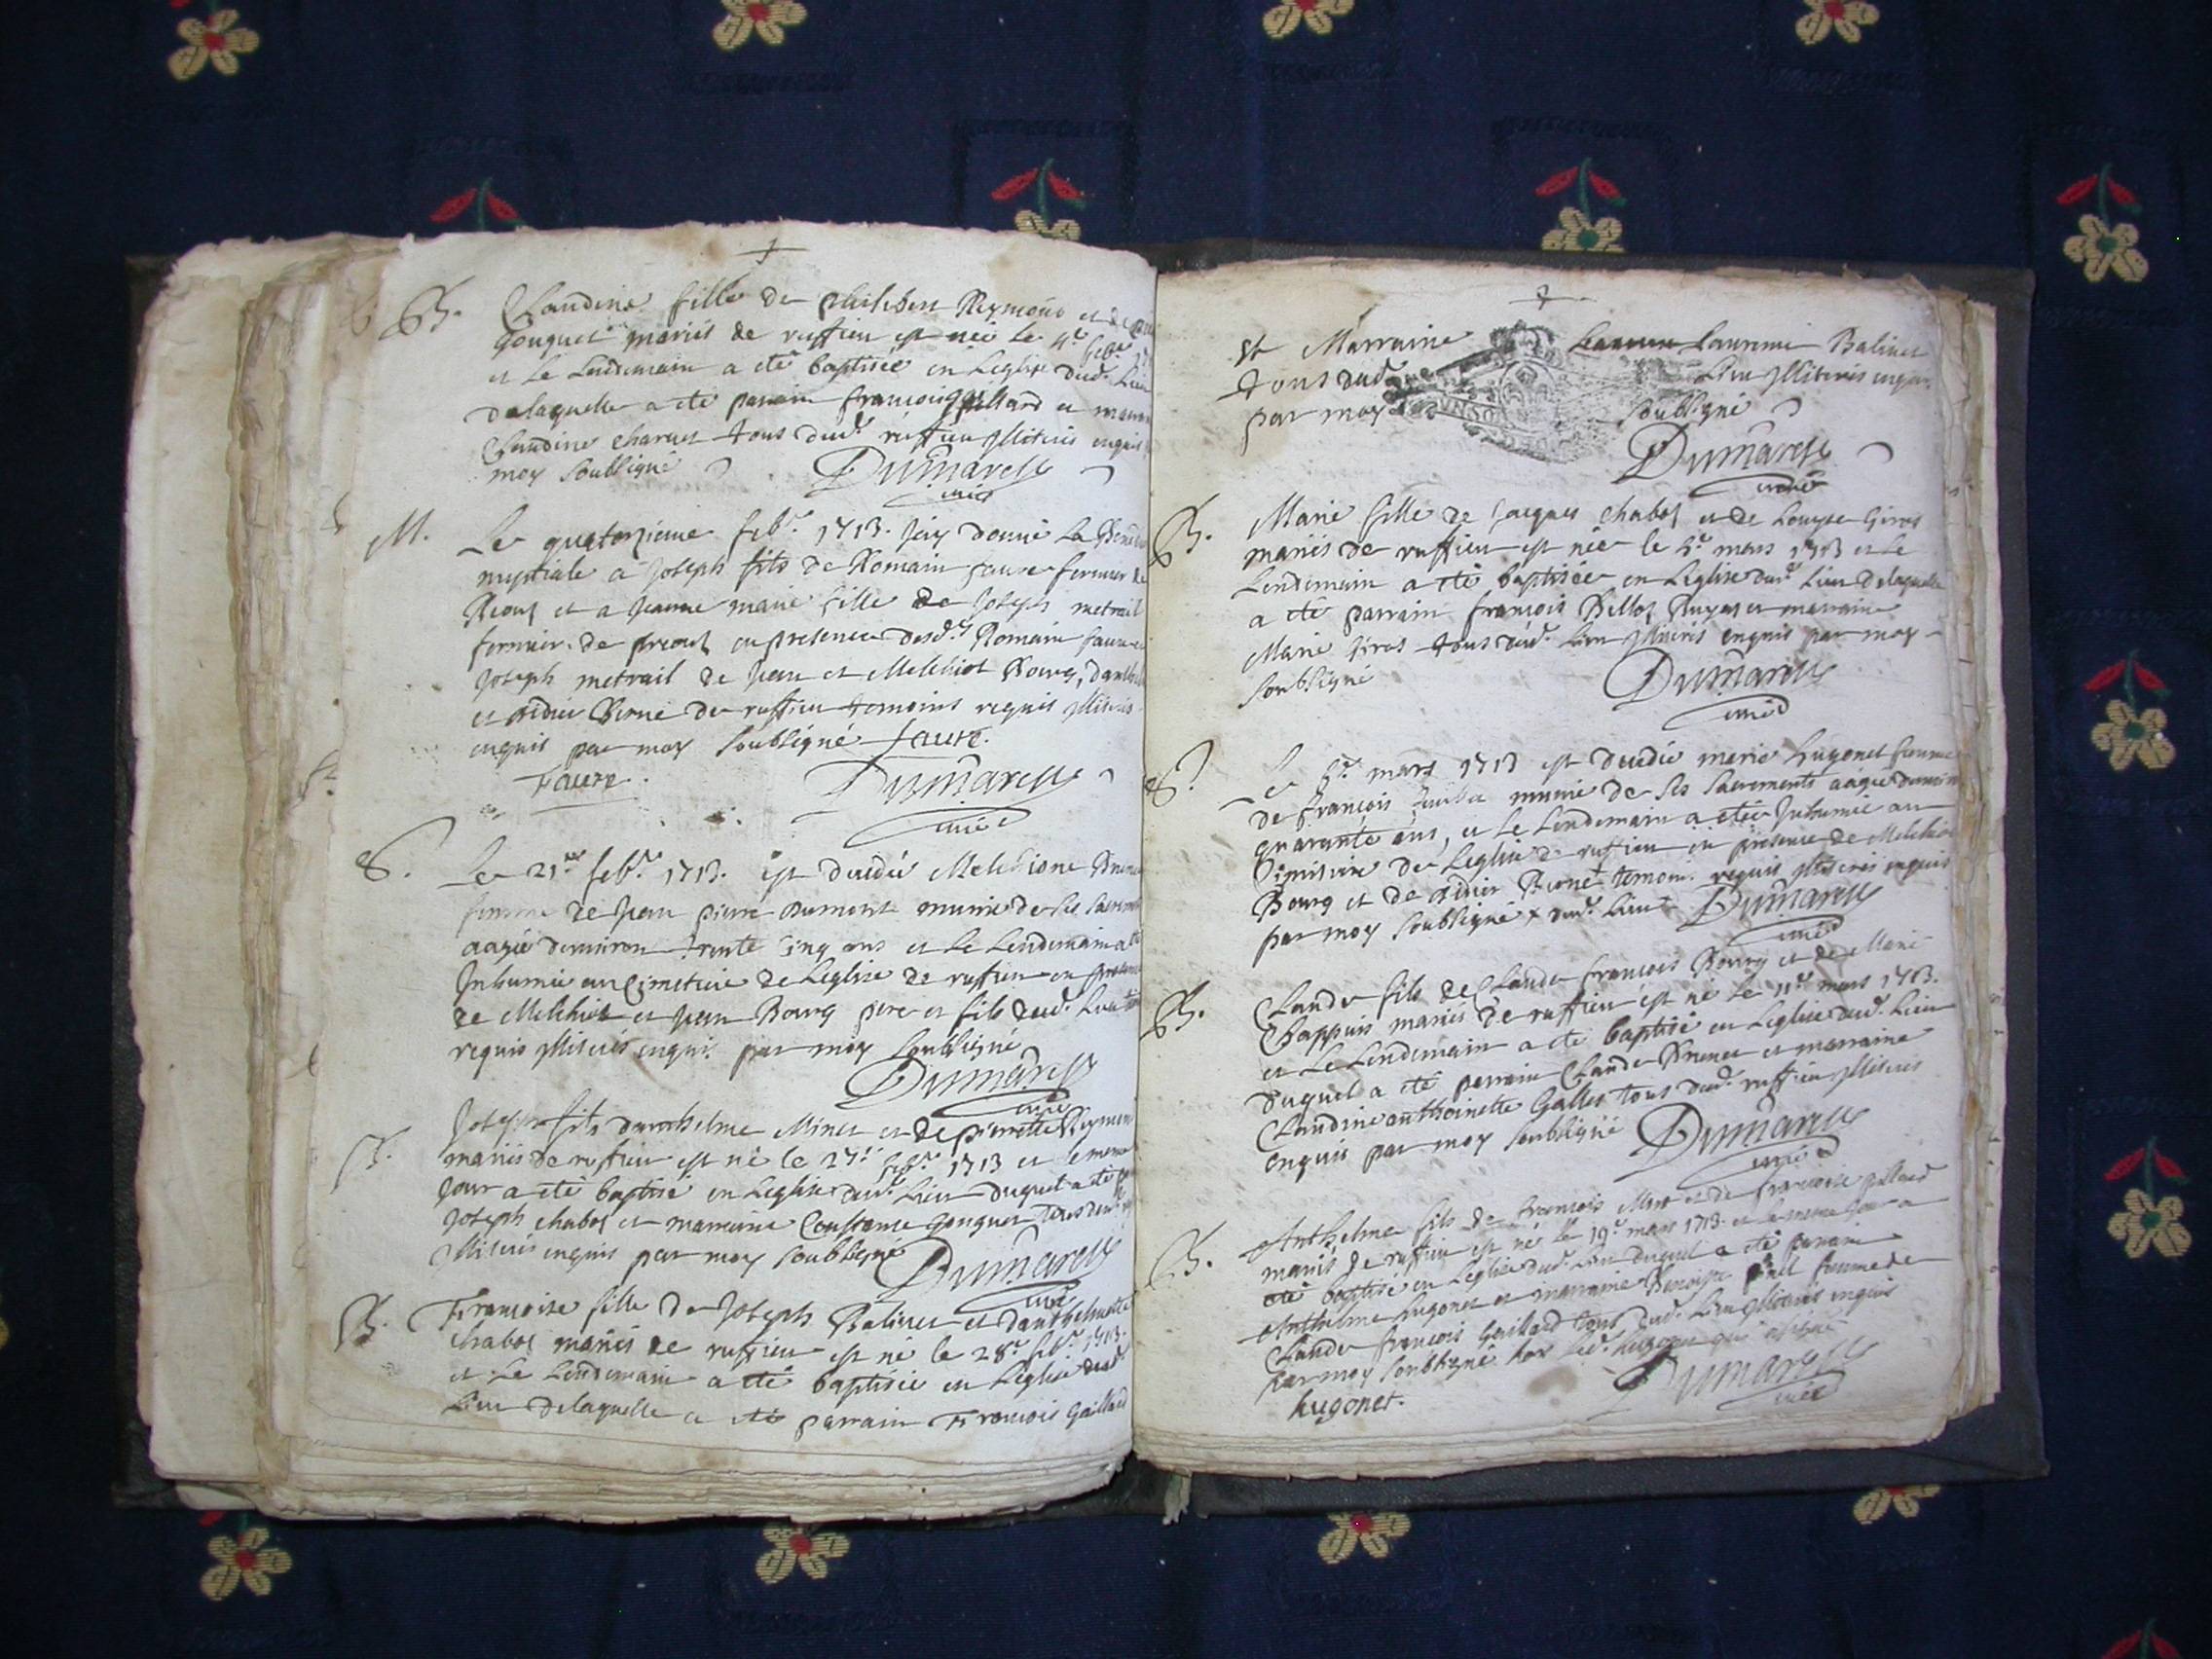 B. Claudine fille de philibert Reymond et de
Gouguet mariés de ruffieu est née le 4e febr.
et le Lendemain a eté baptisée en Leglise dud. Lieu
delaquelle a eté parrain francois Gaillard et marraine
Claudine charuet tous dud. ruffieu illiterés enquis
moy soubsigné Dumarest
curé
M. Le quatorzieme febr. 1713. jay donné La Bened
nuptiale a Joseph fils de Romain faure fermier de
et a Jeanne marie fille de Joseph metrail
fermier de en presence desd. Romain faure et
Joseph metrail de Jean et Melchiot Bourg,
et didier de ruffieu temoins requis illiterés
enquis par moy soubsigné faure.
Faure. Dumarest
curé
S. Le 21e febr. 1713. est decedée Melchione
femme de Jean pierre Dumont munie de ses sacrements
aagée denviron trente cinq ans et le Lendemain a
Inhumée au Cimetiere de Leglise de ruffieu en presence
de Melchiot et Jean Bourg pere et fils dud. Lieu
requis illiterés enquis par moy soubsigné
Dumarest
curé
B. Joseph fils danthelme Minet et de pierrette Reymond
mariés de ruffieu est né le 27e febr. 1713 et le meme
Jour a eté baptisé en Leglise dud. Lieu duquel a eté
Joseph chabot et marraine Constance Gouguet tous dud.
illiterés enquis par moy soubsigné Dumarest
curé
B. Francoise fille de Joseph Balivet et danthelmette
chabot mariés de ruffieu est né le 28e febr. 1713.
et Le Lendemain a eté baptisée en Leglise dud.
Lieu delaquelle a eté parrain Francois Gaillard
et Marraine Laurence Balivet
tous dud. Lieu illiterés enquis
par moy soubsigné
Dumarest
curé
B. Marie fille de Jacques chabot et de Louyse Giros
mariés de ruffieu est née le 5e mars 1713 et Le
Lendemain a eté baptisée en Leglise dud. Lieu delaquelle
a eté parrain francois Billot et marraine
Marie Giros tous dud. Lieu illiterés enquis par moy
soubsigné Dumarest
curé
S. Le mars 1713 est decedée marie hugonet femme
de francois munie de ses sacrements aagée denviron
quarante ans, et Le Lendemain a eté Inhumée au
Cimitiere de Leglise de ruffieu en presence de Melchiot
Bourg et de didier temoins requis illiterés enquis
par moy soubsigné x dud. Lieu Dumarest
curé
B. Claude fils de Claude francois Bourg et de Marie
Chappuis mariés de ruffieu est né le 11e mars 1713.
et Le Lendemain a eté baptisé en Leglise dud. Lieu
duquel a eté parrain Claude et marraine
Claudine anthoinette Gallet tous dud. ruffieu illiterés
enquis par moy soubsigné Dumarest
curé
B. Anthelme fils de francois et de francoise
mariés de ruffieu est né le 19e mars 1713. et le meme Jour a
eté baptisé en Leglise dud. Lieu duquel a eté parrain
Anthelme hugonet et marraine femme de
Claude francois Gaillard tous dud. Lieu illiterés enquis
par moy soubsigné hor led. hugonet qui a signé
hugonet. Dumarest
curé